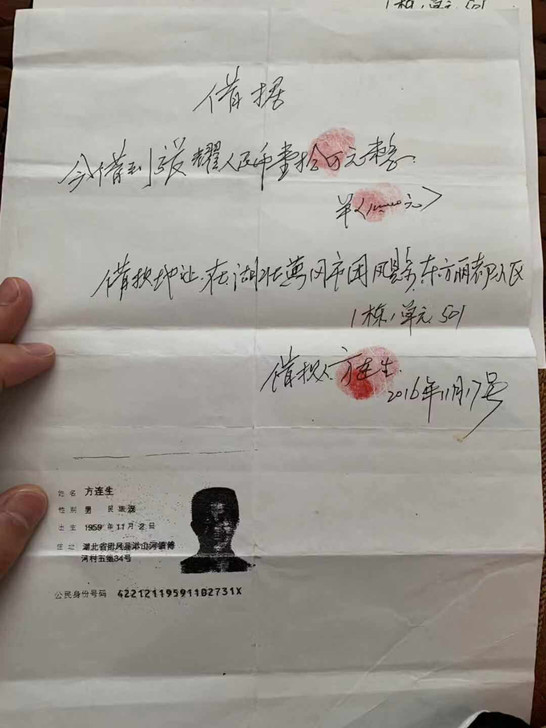 1栋1单元501
借据
今借到张耀人民币壹拾万元整
借款地址在湖北黄冈市团风县东方丽都小区
1栋1单元501
借款人 方连生
2016年11月17号
姓名 方连生
性别 男 民族 汉
出生 1959年11月2日
河村五组34号
公民身份号码 42212119591102731X